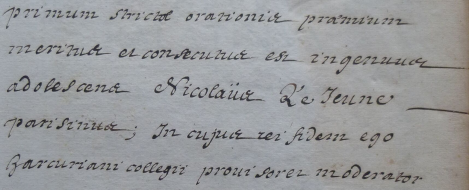 primum strictæ orationis præmium
meritus et consecutus est ingenuus
adolescens Nicolaüs Le Jeune
parisinus; In cujus rei fidem ego
harcuriani collegii provisor et moderator